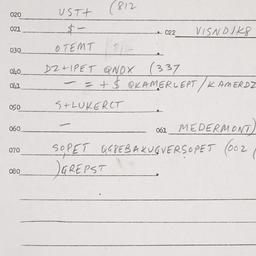 020 USTT (812
021 $-
022 VISNDIK8
030 OTEMT
040 DZ+IPET QNDX (337
041 - = + $ QKAMERLEPT/KAMERDZ
050 S+LUKERCT
060 -
061 MEDERMONT)
070 SOPET GGPEBAKUGVERSOPET (002 (
080 )GREPST